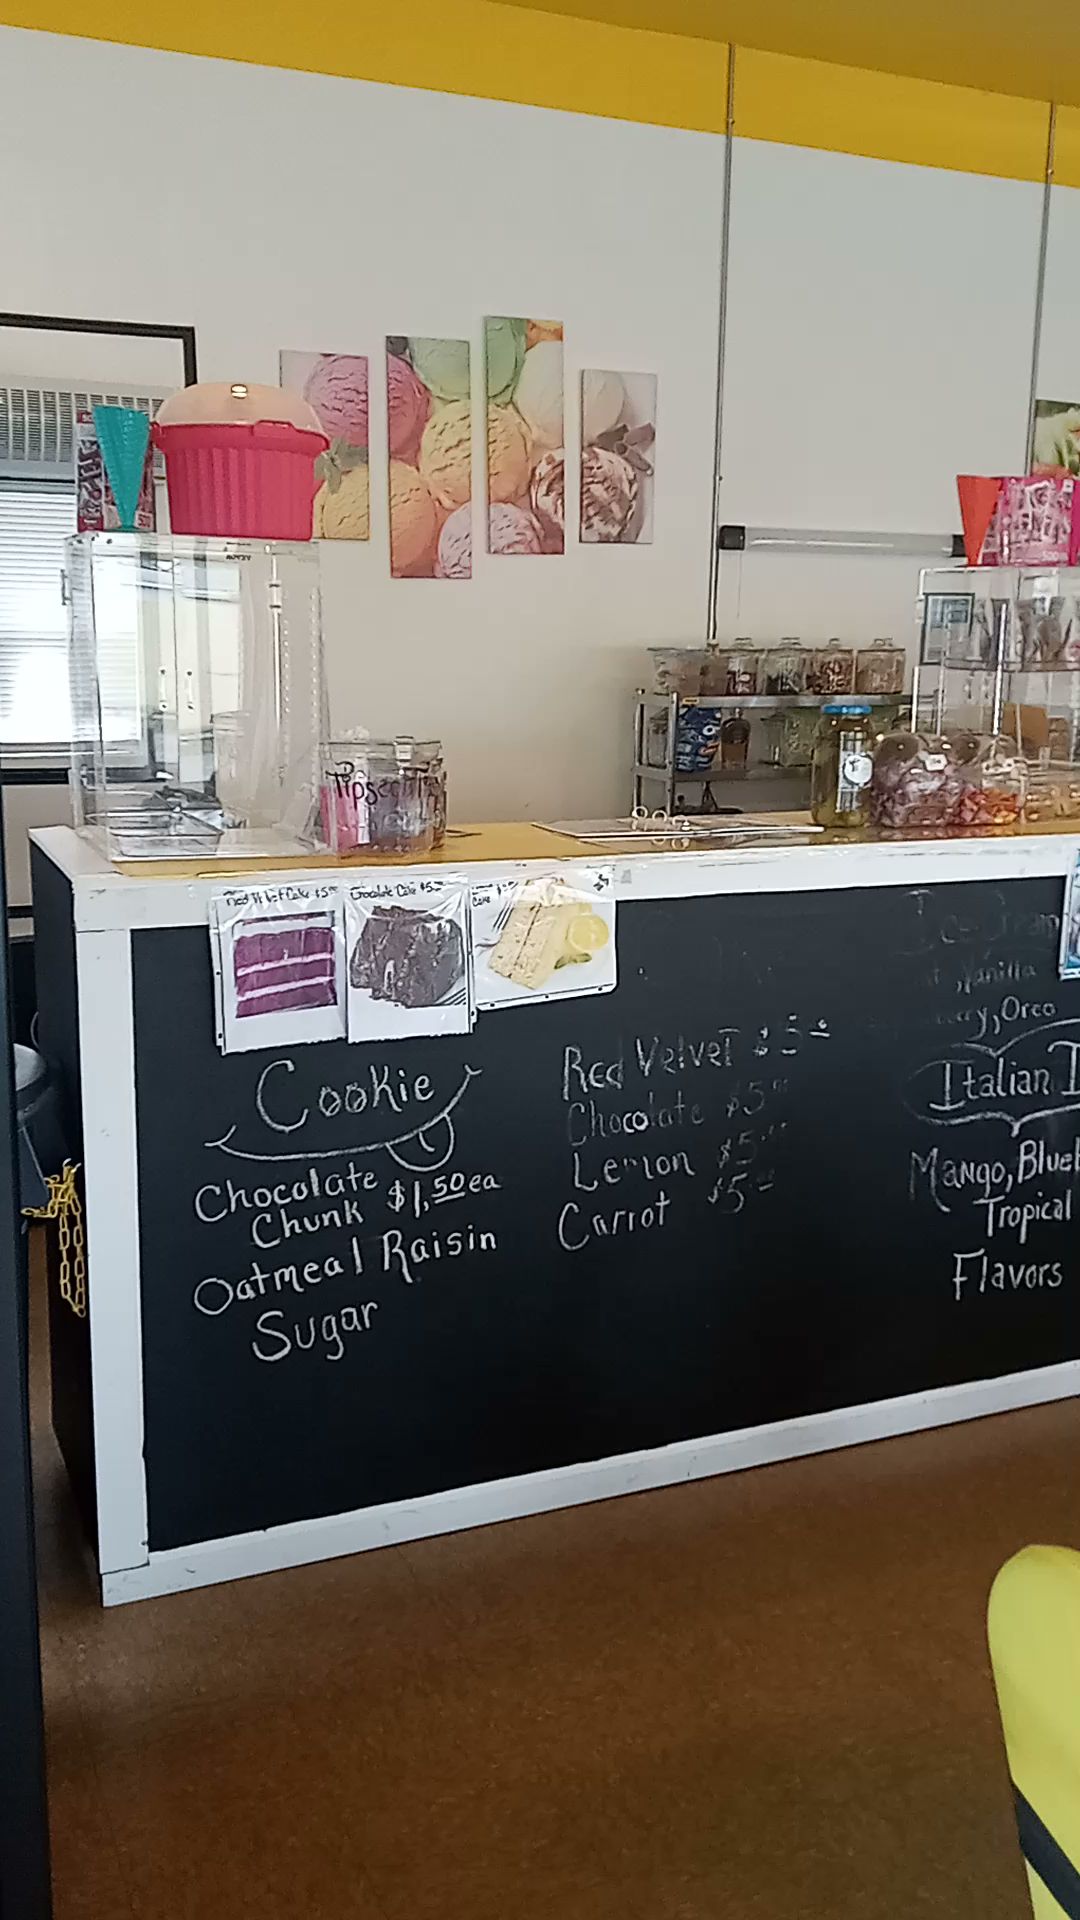 Tips
Red Velvet Cake $5.00
Chocolate Cake $5.00
Cake
Cookie
Chocolate
Chunk $1.50 ea
Oatmeal Raisin
Sugar
Red Velvet $5.00
Chocolate $5.00
Lemon $5.00
Carrot $5.00
Ice Cream
Vanilla
, Oreo
Italian I
Mango, Blueb
Tropical
Flavors
500